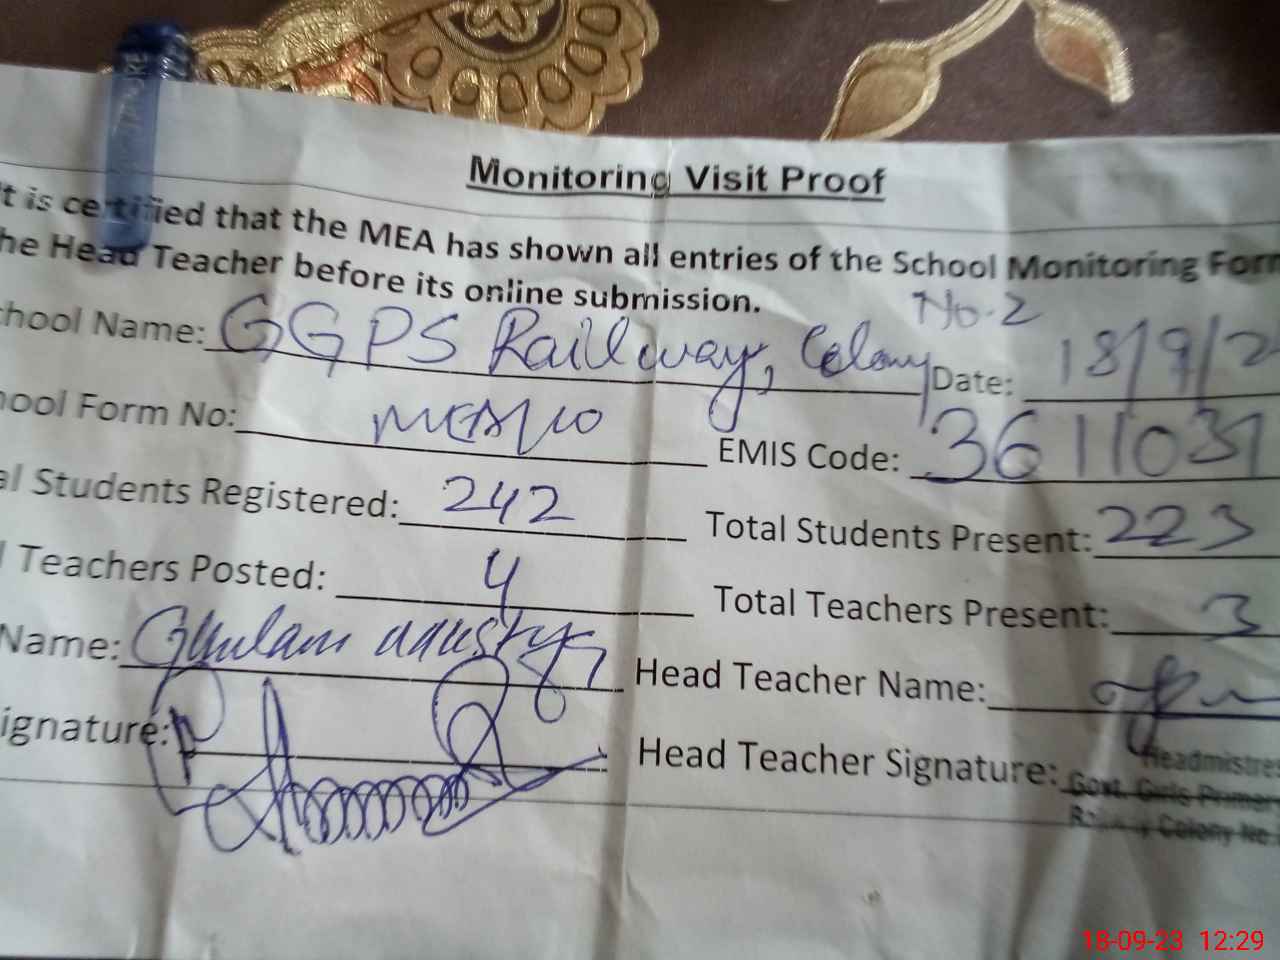 Monitoring Visit Proof
t is certified that the MEA has shown all entries of the School Monitoring Form
he Head Teacher before its online submission.
No.2
chool Name: GGPS Raillway, Colony Date: 18/9/2
hool Form No: EMIS Code: 3611031
al Students Registered: 242 Total Students Present: 223
l Teachers Posted: 4 Total Teachers Present: 3
Name: Ghulam Head Teacher Name:
ignature: Head Teacher Signature:
Headmistres
Govt. Girls Primary
Colony No.
18-09-23 12:29